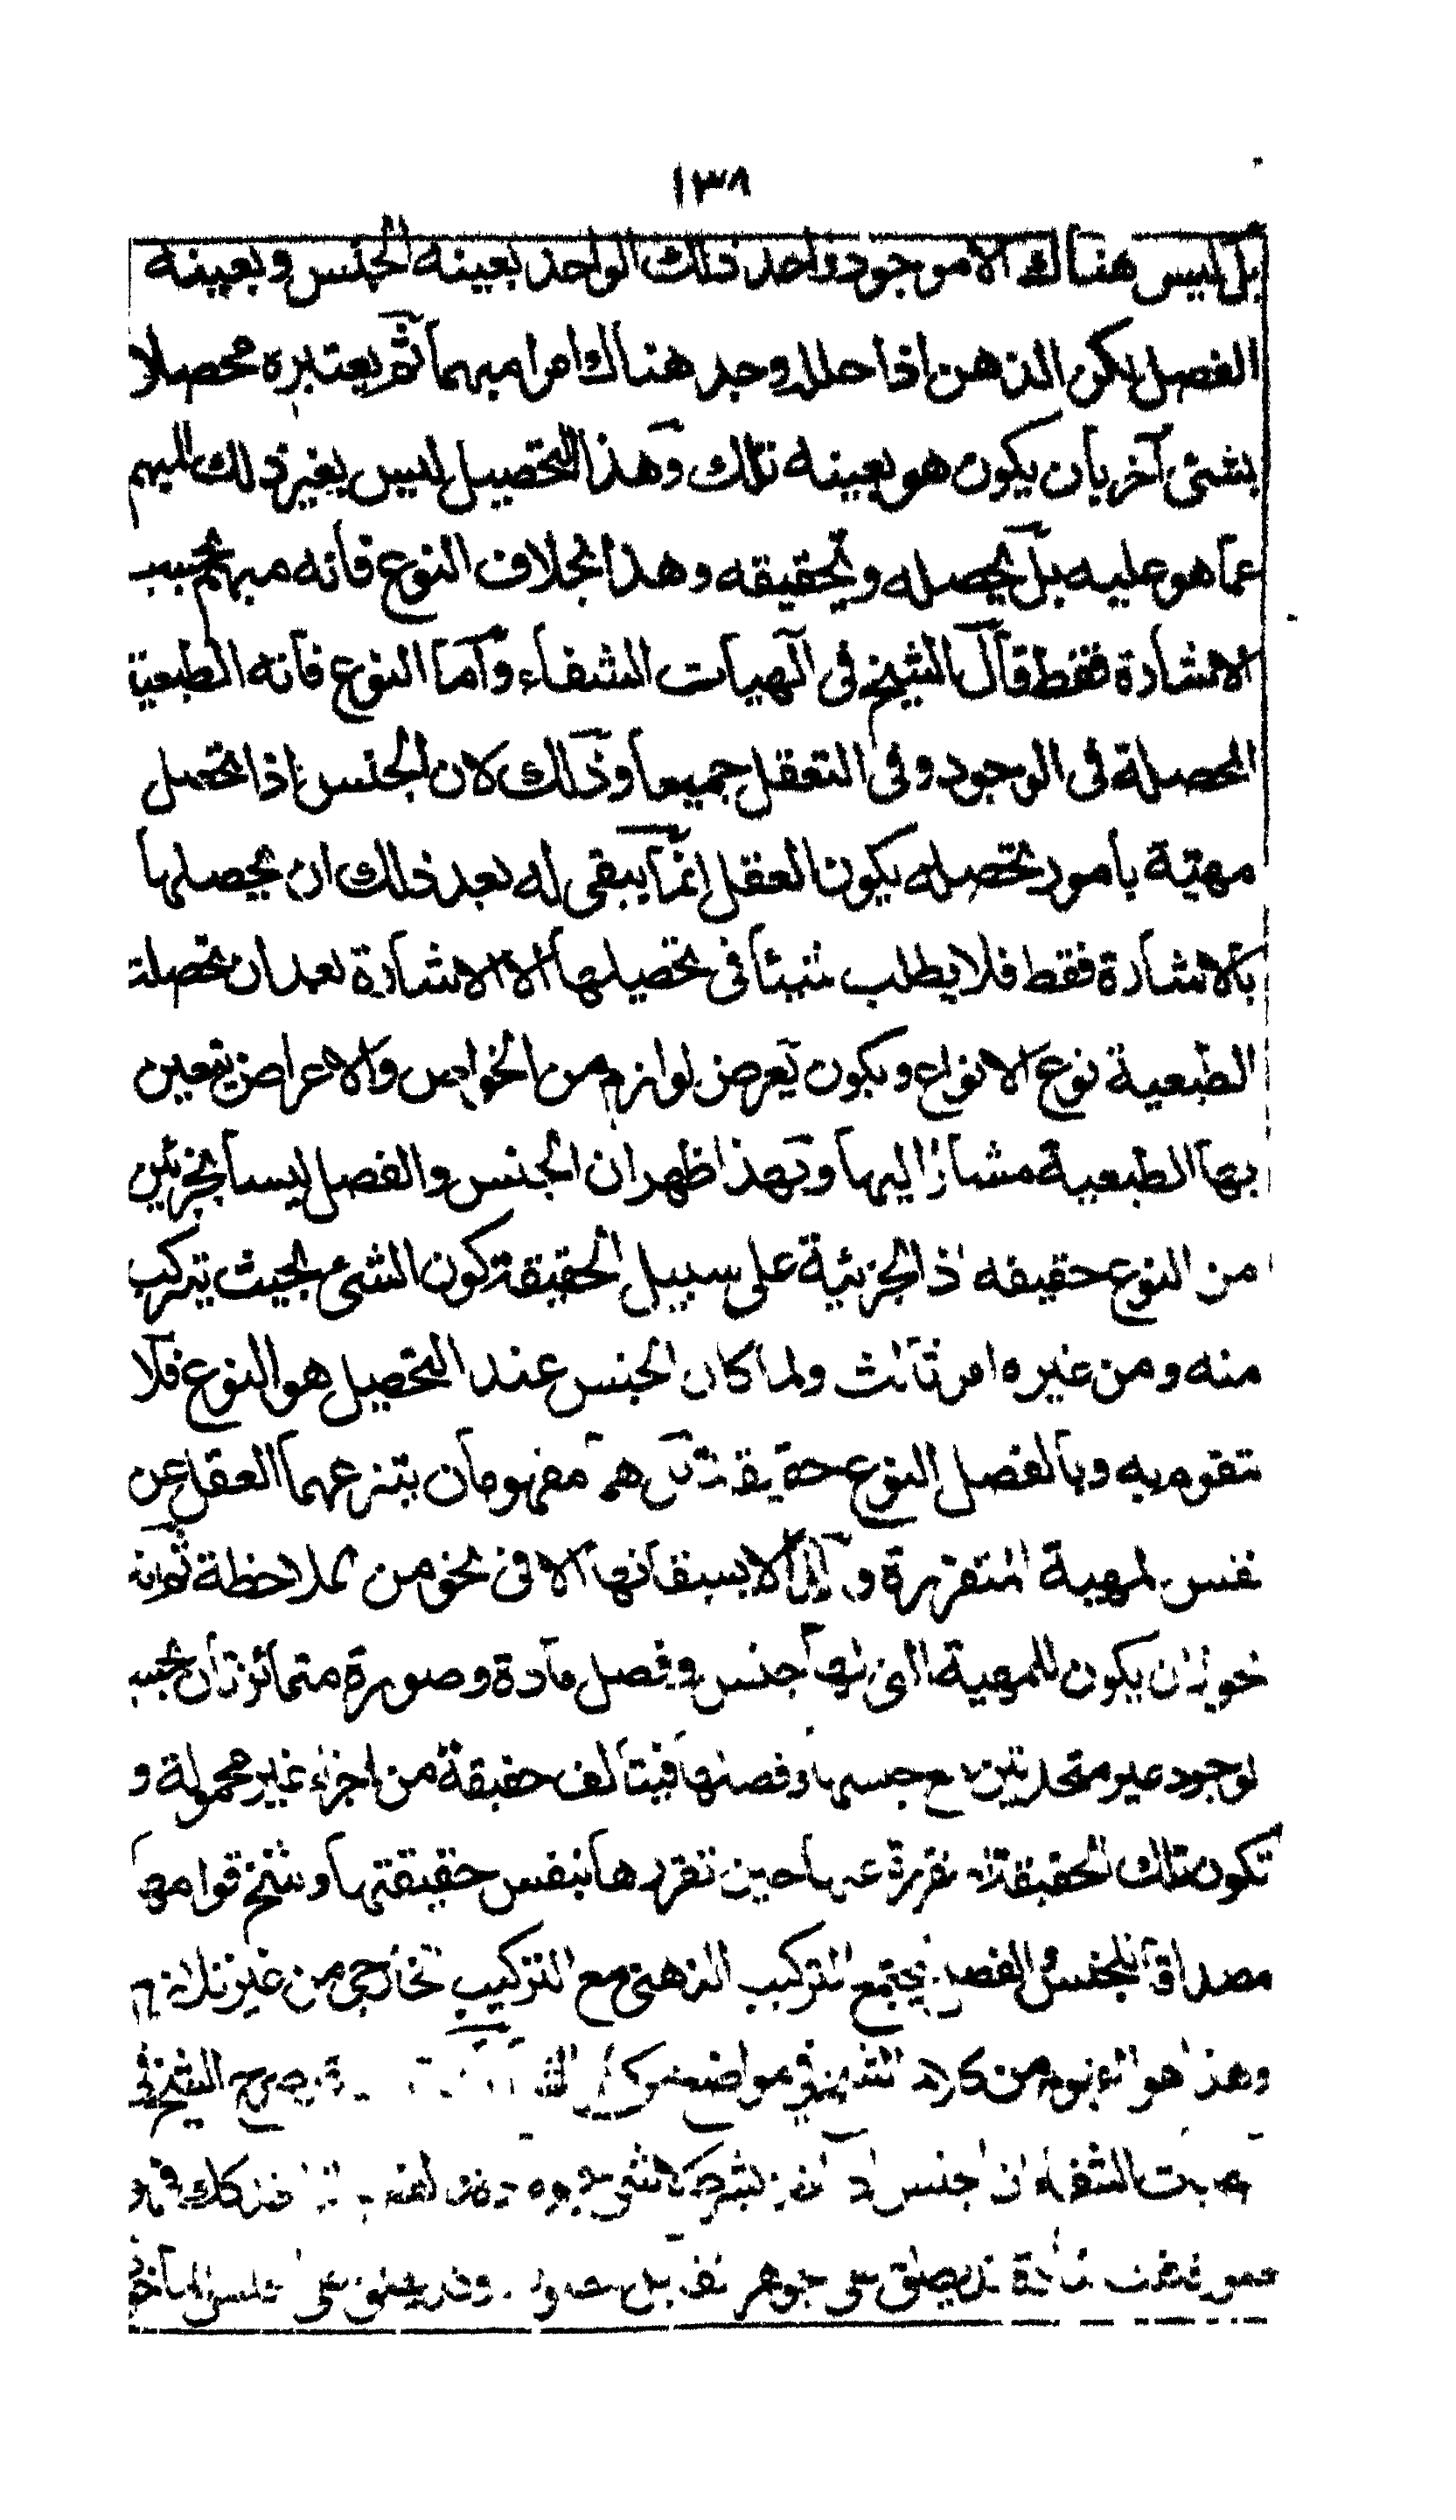 ١٣٨
بل ليس هناك الا موجود واحد ذلك الواحد بعينه الجنس وبعينه
الفصل لكن الذهن اذا حلله وجد هناك امرا مبهما ثم يعتبره محصلا
بشئ آخر بان يكون هو بعينه تلك وهذا التحصيل ليس بغير ذلك المبهم
عما هو عليه بل يحصله ويحقيقه وهذا بخلاف النوع فانه مبهم بحسب
الاشارة فقط قال الشيخ فى آلهيات الشفاء واما النوع فانه الطبعية
المحصلة فى الوجود وفى التعقل جميعا وذلك لان الجنس اذا تحصل
مهيّة بامور تحصله يكون العقل انما يبقى له بعد ذلك ان يحصلها
بالاشارة فقط فلا يطلب شيئا فى تحصيلها الا الاشارة بعد ان تحصلت
الطبعية نوع الانواع ويكون يعرض لوازم من الخواص والاعراض يتعين
بها الطبعية مشارا اليها وبهذا ظهر ان الجنس والفصل ليسا بجزئين
من النوع حقيقه اذ الجزئية على سبيل الحقيقة كون الشئ بحيث يتركب
منه ومن غيره امر ثالث ولما كان الجنس عند التحصيل هو النوع فلا
يتقوم به وبالفصل النوع حقيقة بل هما مفهومان ينتزعهما العقل عن
نفس المهية المتقررة و لا يسبقانها الا فى نحو من الملاحظة ثم انه
يجوز ان يكون للمهية التى لها جنس وفصل مادة وصورة متمائزتان بحسب
الوجود غير متحدتين مع جنسها وفصلها فيتالف حقيقة من اجزاء غير محمولة و
تكون تلك الحقيقة المتقررة عنها حين تقررها بنفس حقيقتها وسنخ قوامها
مصداقا للجنس والفصل فيجتمع التركيب الذهنى مع التركيب الخارجى من غير تلازم
وهذا هو المفهوم من كلام الشيخ فى مواضع من كتاب الشفاء صرح الشيخ فى
الهيات الشفاء ان الجنس
على جوهر وقد يطلق على